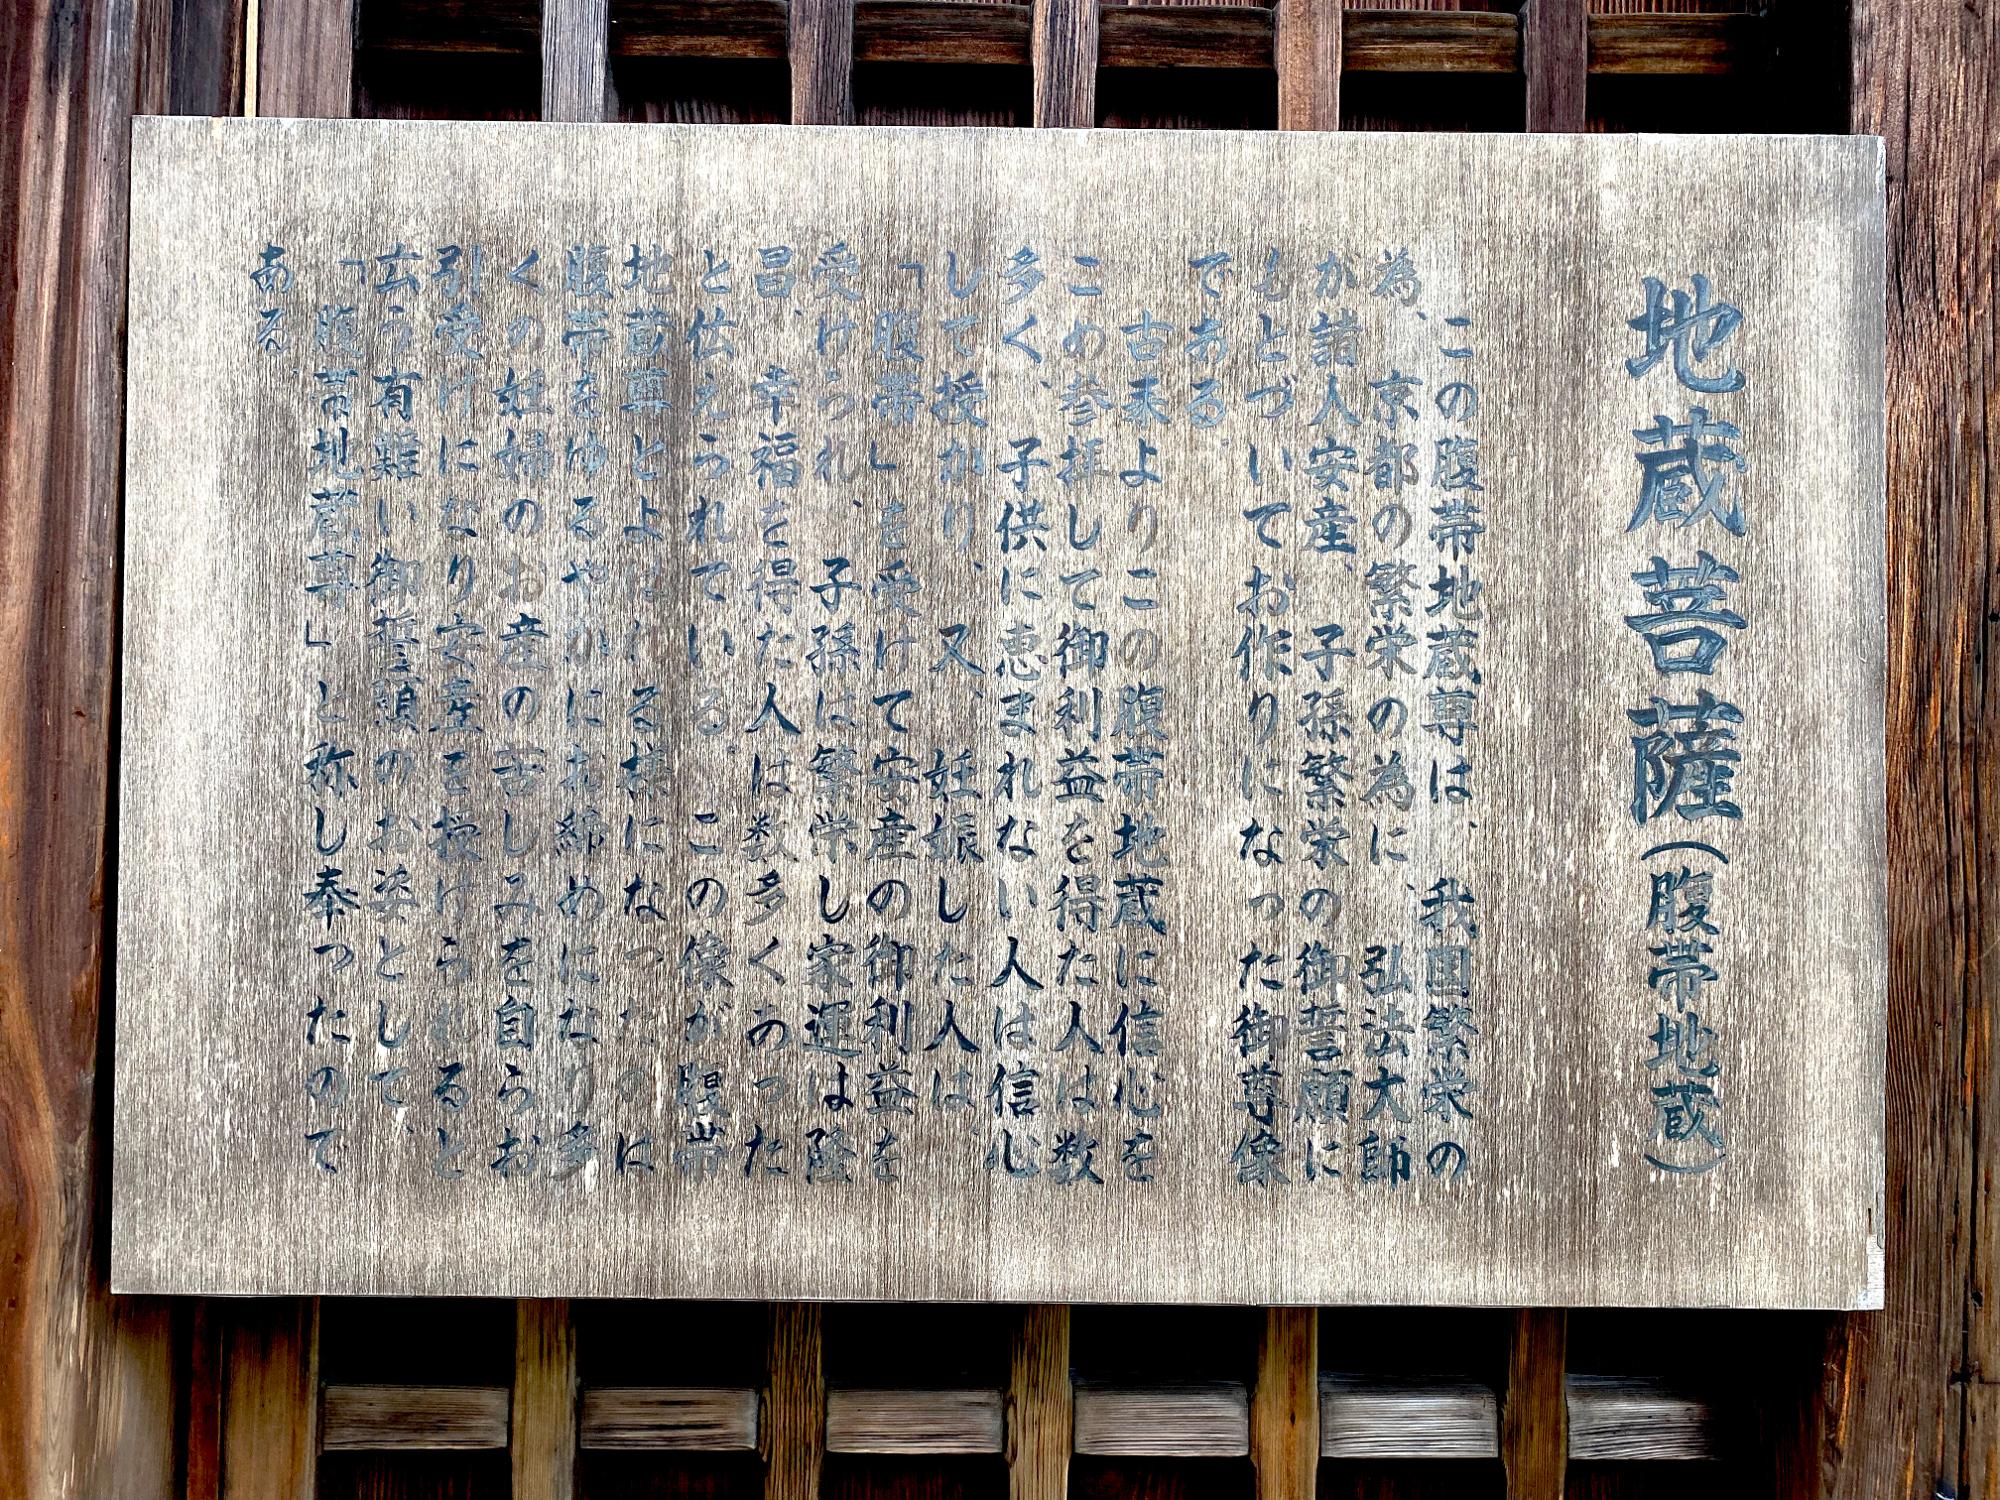 地蔵菩薩(腹帯地蔵)
この腹帯地蔵尊は、我国繁栄の
為、京都の繁栄の為に、弘法大師
が諸人安産、子孫繁栄の御誓願に
もとづいてお作りになった御尊像
である。
古来よりこの腹帯地蔵に信心を
こめ参拝して御利益を得た人は数
多く、子供に恵まれない人は信心
して授かり、又、妊娠した人は、
「腹帯」を受けて安産の御利益を
受けられ、子孫は繁栄し家運は隆
昌、幸福を得た人は数多くあった
と伝えられている。この像が腹帯
地蔵尊とよばれる様になったのは
腹帯をゆるやかにお締めになり多
くの妊婦のお産の苦しみを自らお
引受けになり安産を授けられると
広う有難い御誓願のお姿として、
「腹帯地蔵尊」と称し奉ったので
ある。